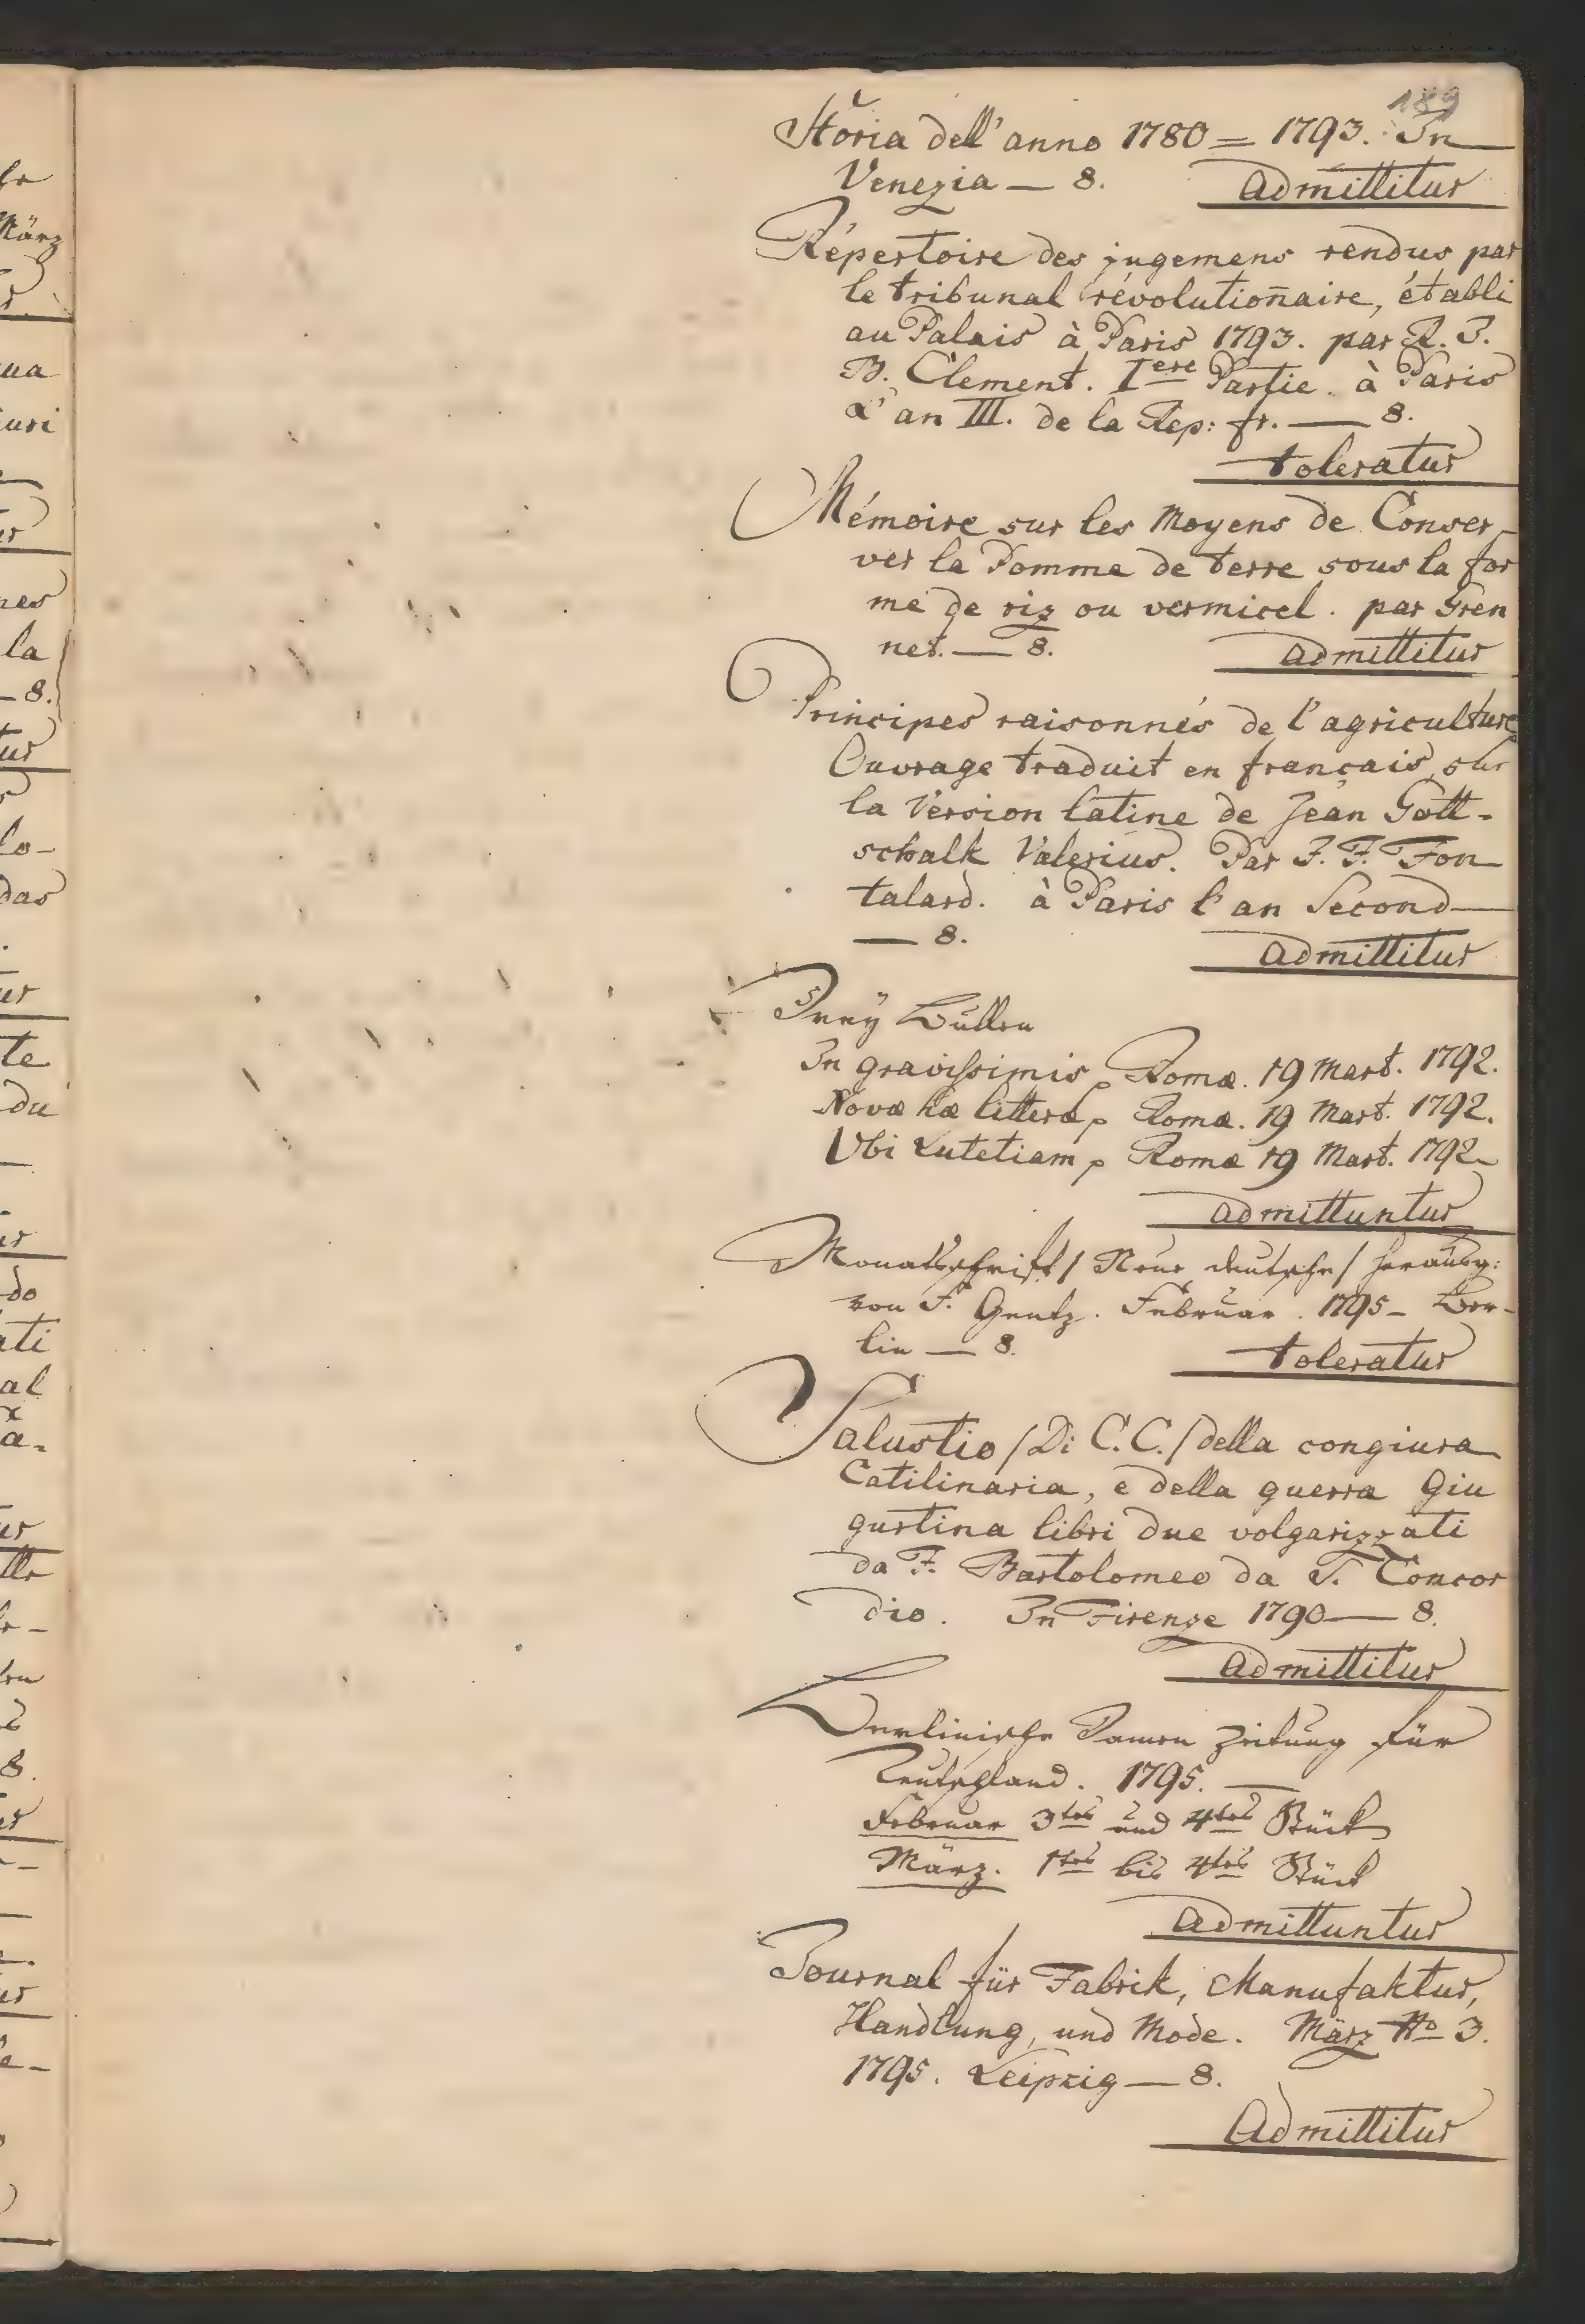 189
Storia dell' anno 1780 = 1793. In
Venezia — 8. admittitur
Répertoire des jugemens rendus par
le tribunal révolutioñaire, établi
au Palais à Paris 1793. par R. J.
B. Clement. Iere Partie. à Paris
L'an III. de la Rep: fr. — 8.
toleratur
Mémoire sur les Moyens de Conser-
ver la Pomme de terre sous la for
me de riz ou vermicel. par Gren
net. — 8. admittitur
Principes raisonnés de l'agriculture
Ouvrage traduit en français, sur
la Version latine de Jean Gott-
schalk Valerius. Par J. F. Fon
talard. à Paris l'an Second —
— 8. admittitur
Dreÿ Bullen
In gravissimis Romæ. 19 Mart. 1792.
Novæ hæ litteræ Romæ. 19 Mart. 1792.
Ubi Lutetiam Romæ 19 Mart. 1792
admittuntur
Monatsschrift / Neue deutsche / herausg:
von F. Gentz. Februar. 1795 – Ber-
lin — 8. toleratur
Salustio / Di C. C. / della congiura
Catilinaria, e della guerra Giu
gurtina libri due volgarizzati
da F. Bartolomeo da S. Concor
dio. In Firenze 1790 — 8.
admittitur
Berlinische Damen Zeitung für
Teutschland. 1795. —
Februar 3tes und 4tes Stück
März. 1tes bis 4tes Stück
admittuntur
Journal für Fabrik, Manufaktur,
Handlung, und Mode. März No 3.
1795. Leipzig — 8.
Admittitur